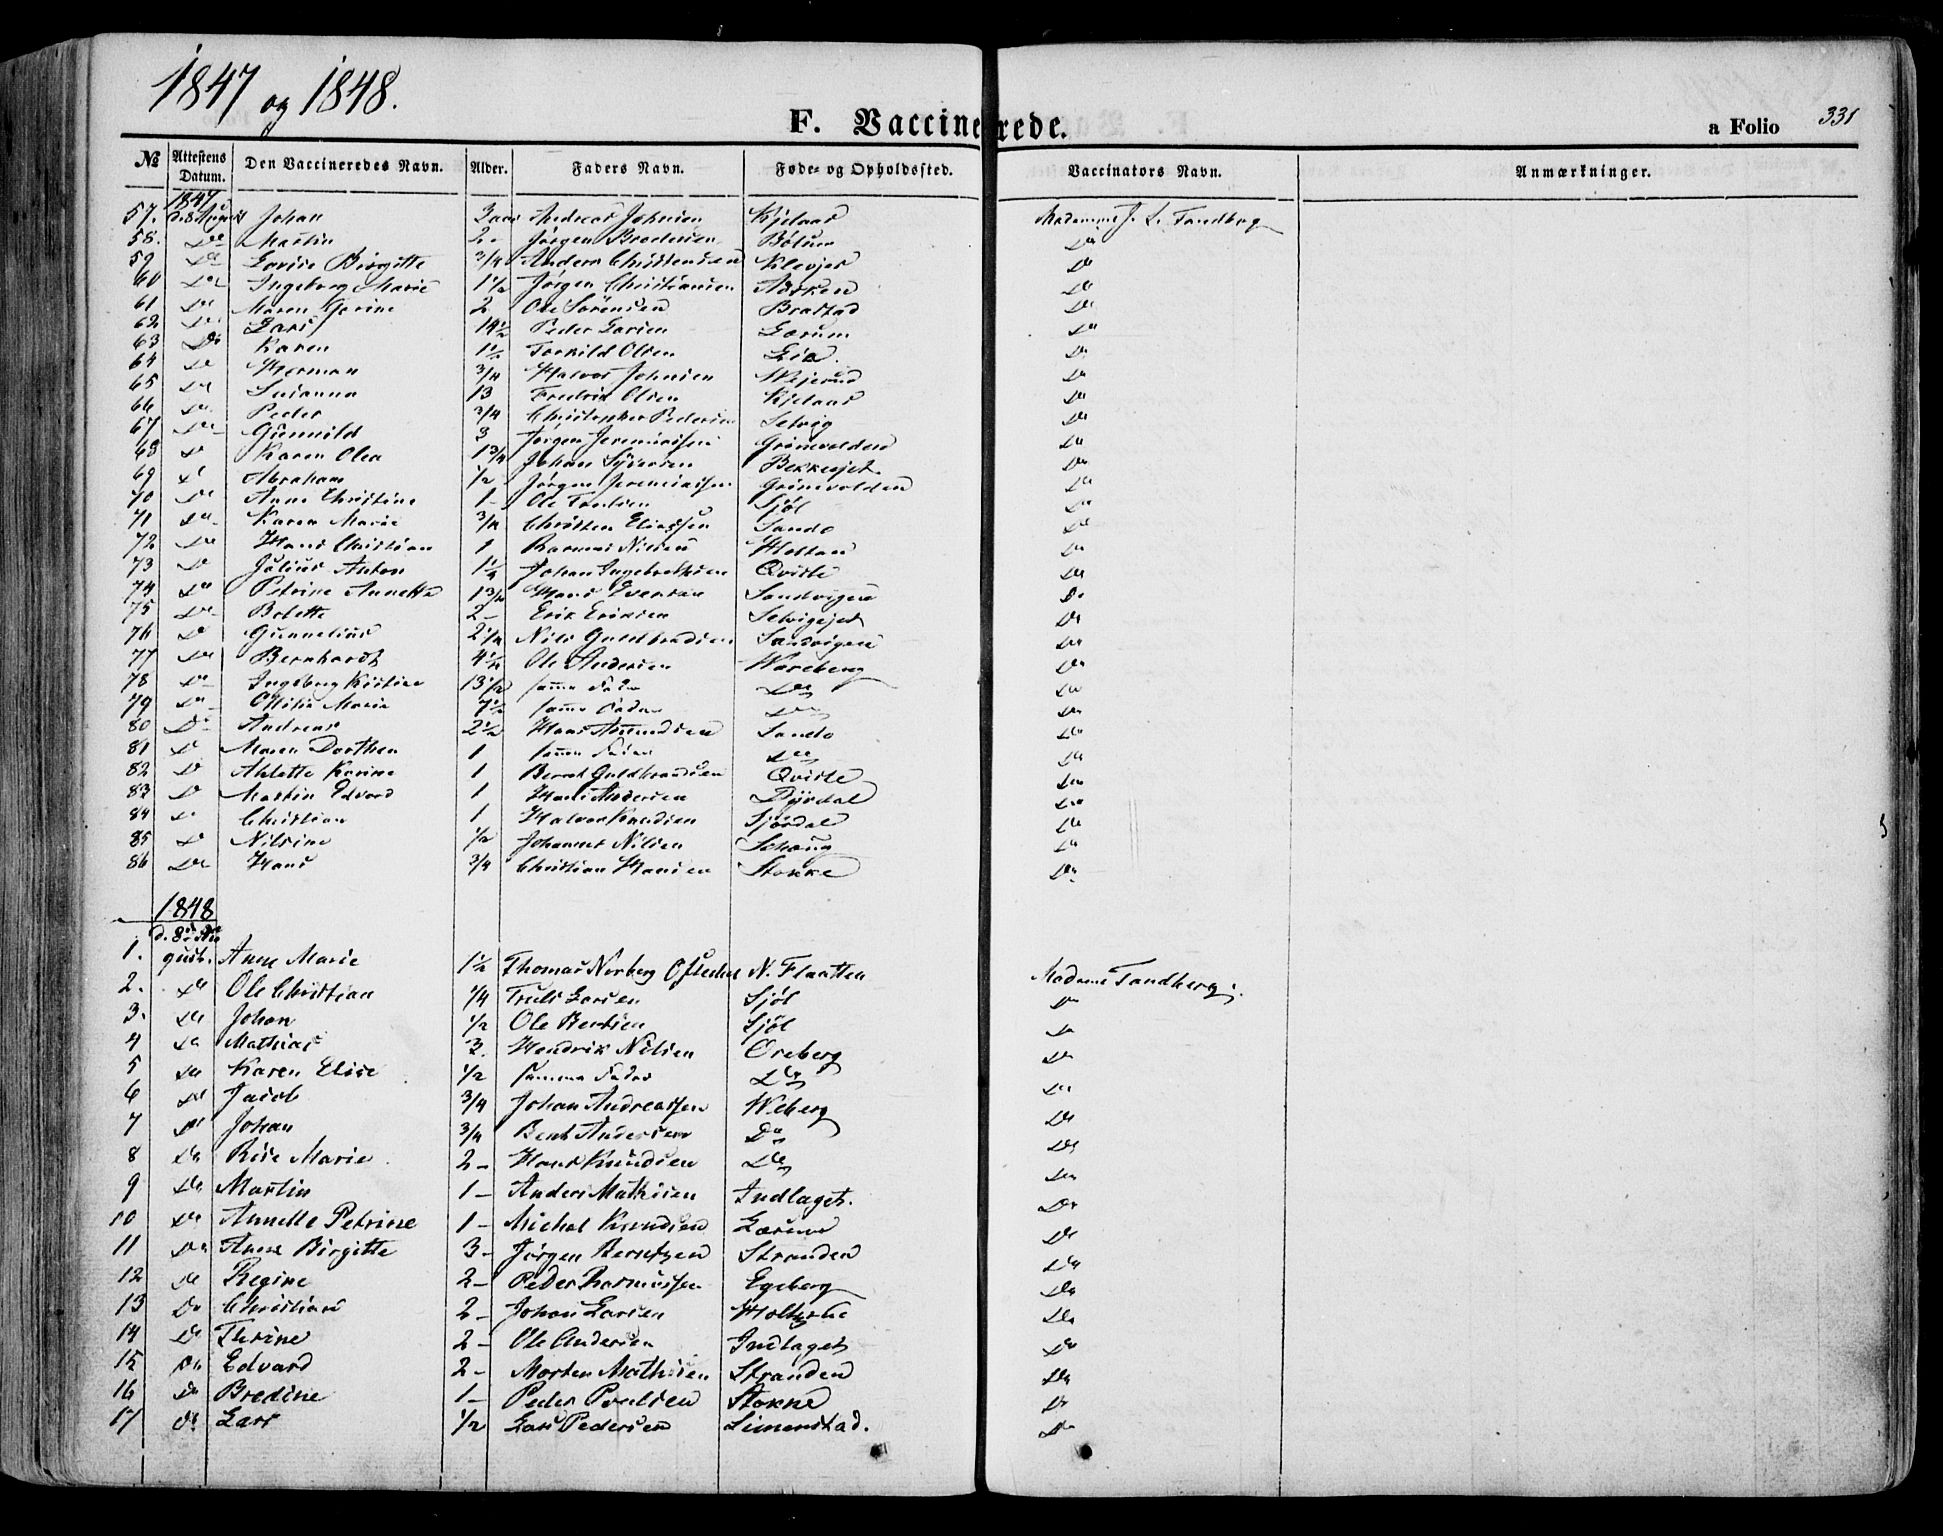 1847 og 1848.
F. Vaccinerede.
a Folio 331
№ Attestens Datum. Den Vaccineredes Navn. Alder. Faders Navn. Føde- og Opholdssted. Vaccinators Navn. Anmærkninger.
1847
57. d. 8 August Johan 3 aar Andreas Johnsen Kjelaas Madamme J. L. Tandberg
58. Do Martin 2 - Jørgen Brodersen Do
59 Do Lovise Birgitte 3/4 Anders Christensen Klevjer Do
60 Do Ingeborg Marie 1 1/2 Jørgen Christiansen Do
61 Do Maren 2 Ole Sørensen Brattad Do
62 Do Lars 14 1/2 Peder Larsen Lærum Do
63 Do Karen 1 1/2 Torkild Olsen Lia. Do
64 Do Herman 3/4 Halvor Johnsen Wejerud Do
65 Do Susanna 13 Fredrik Olsen Kjelaas Do
66 Do Peder 3/4 Christopher Pedersen Selvig Do
67 Do Gunnild 3 Jørgen Jeremiassen Grönevolden Do
68 Do Karen Olea 1 3/4 Johan Syversen Bekkeejet Do
69 Do Abraham 1/2 Jörgen Jeremiassen Grönevolden Do
70 Do Anne Christine 1 - Ole Sjöl Do
71 Do Karen Marie 3/4 Christen Eliassen Sande Do
72 Do Hans Christian 1 Rasmus Nilsen Holtan Do
73 Do Julius Anton 1 1/4 Johan Ingebrethsen Qvisle Do
74 Do Petrine Annette 1 3/4 Hans Evensen Sandvigen Do
75 Do Bolette 2 - Erik Eriksen Selvigejet Do
76 Do Gunnelius 2 1/4 Nils Guldbrandsen Sandvigen Do
77 Do Bernhardt 4 1/2 Ole Andersen Wareberg Do
78 Do Ingeborg Kistine 13 1/2 samme Fader Do Do
79 Do Ottilie Marie 7 1/2 samme Fader Do Do
80 Do Andreas 2 1/2 Hans Amundsen Sande Do
81 Do Maren Dorthea 1 samme Fader Do Do
82 Do Ahlette Karine 1 Bernt Guldbrandsen Qvisle Do
83 Do Martin Edvard 1 Hans Andersen Dyrdal Do
84 Do Christian 1 Halvor Knudsen Sjördal Do
85 Do Nilsine 1/2 Johannes Nilsen Schaug Do
86 Do Hans 3/4 Christian Hansen Stokke Do
1848
d. 8de Au
1. gust. Anne Marie 1 1/2 Thomas Norberg N. Flaatten Madame Tandberg.
2. Do Ole Christian 1/4 Truls Larsen Sjöl Do
3. Do Johan 1/2 Ole Bentsen Sjöl Do
4 Do Mathias 3. Hendrik Nilsen Oreberg Do
5 Do Karen Elise 1/2 samme Fader Do Do
6 Do Jacob 3/4 Johan Andreassen Weberg Do
7 Do Johan 3/4 Bent Andersen Do Do
8 Do Marie 2 - Hans Knudsen Do Do
9 Do Martin 1 - Anders Mathisen Indlaget. Do
10 Do Annette Petrine 1 - Michel Knudsen Lærum Do
11 Do Anne Birgitte 3 - Jörgen Berntzen Stranden Do
12 Do Regine 2 - Peder Rasmussen Egeberg Do
13 Do Christian 2 - Johan Larsen Do
14 Do Thrine 2 - Ole Andersen Indlaget Do
15 Do Edvard 2 - Morten Mathisen Stranden Do
16 Do Bredine 1 - Peder Poulsen Stokke Do
17 Do Lars 1/2 Lars Pedersen Limenstad. Do